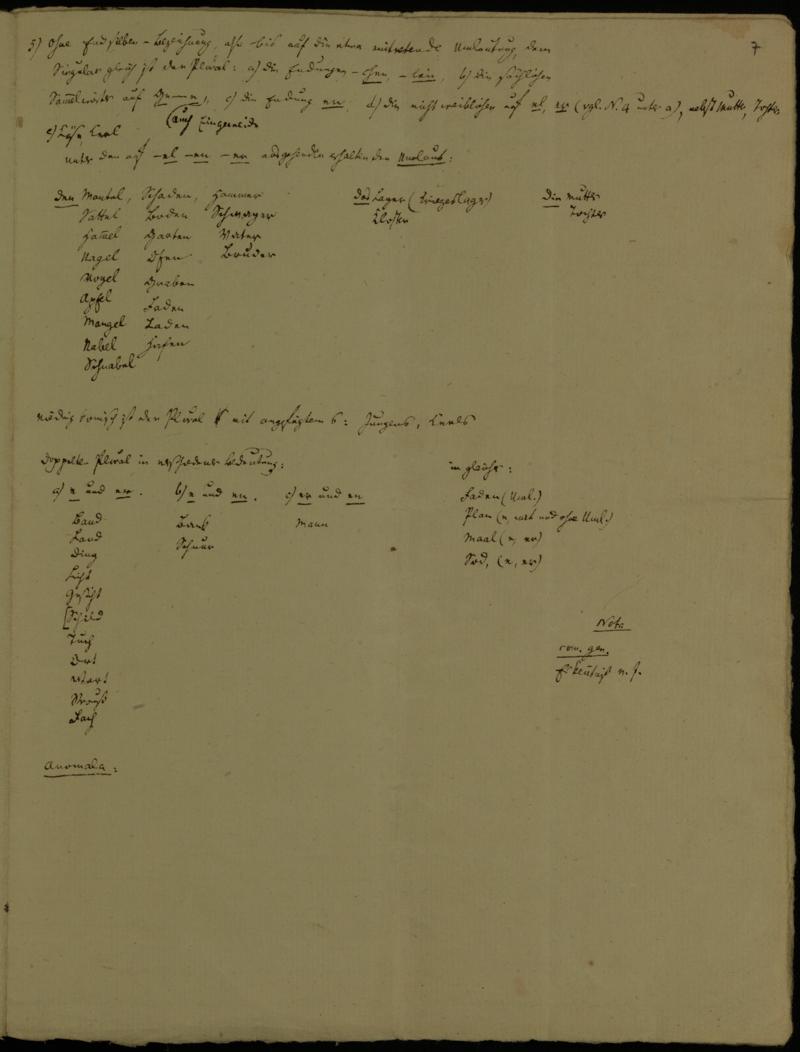 7
5) Ohne Endsylben-Bezeichnung, also bis auf die etwa eintretende Umlautung, dem
Singular gleich ist der Plural: a) die Endungen -chen, -lein, b) die sächlichen
Sam̄elwörter auf Ge c) die Endung en, d) die nicht weiblichen auf el, er (vgl. N. 4 unter a), nebst Mutter, Tochter
(auch Eingeweide
e) Käse, Kerl
unter den auf -el -en -er ausgehenden erhalten den Umlaut:
den Mantel, Schaden, Hammer
Sattel Boden Schwager
Ham̄el Garten Vater
Nagel Ofen Bruder
Vogel Graben
Apfel Faden
Mangel Laden
Nabel Hafen
Schnabel
das Lager (Kriegeslager)
Kloster
die Mutter
Tochter
niedrig komisch ist der Plural mit angefügtem s: Jungens, Kerls
Doppelter Plural in verschiedener Bedeutung:
a) e und er. b) e und en. c) er und en
Band Bank Mann
Land Schnur
Ding
Licht
Gesicht
[Schild
Tuch
Ort
Wort
Strauß
in gleicher:
Faden (Uml.)
Plan (e, mit und ohne Uml.)
Maal (e, er)
(e, er)
Nota
com. gen.
Erkentniß n. f.
Anomala: